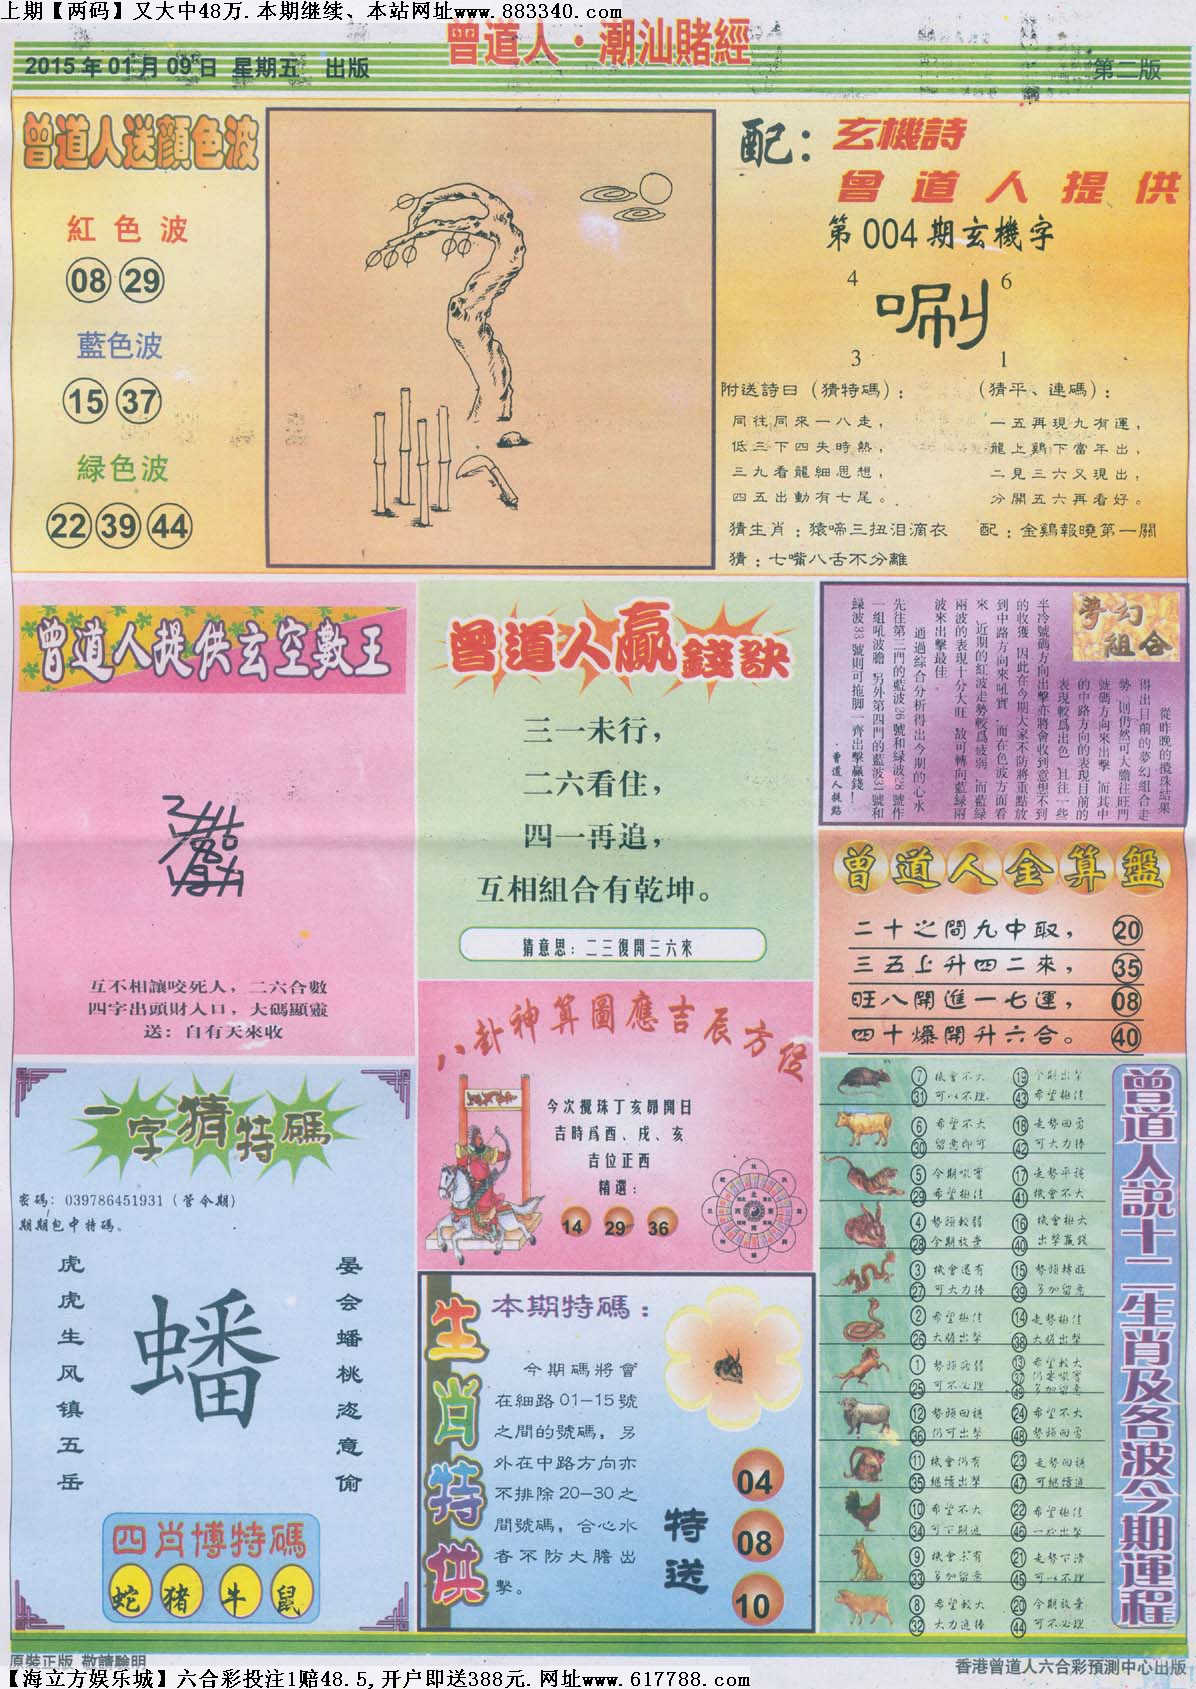 上期【两码】又大中48万.本期继续、本站网址www.883340.com
曾道人·潮汕賭經
2015年01月09日 星期五 出版
第二版
曾道人送顔色波
紅色波
08 29
藍色波
15 37
緑色波
22 39 44
配：
玄機詩
曾道人提供
第004期玄機字
4 6
唰
3 1
附送詩曰（猜特碼）：
同往同來一八走，
低三下四失時熱，
三九看龍細思想，
四五出動有七尾。
（猜平、連碼）：
一五再現九有運，
龍上鷄下當年出，
二見三六又現出，
分開五六再看好。
猜生肖：猿啼三扭泪滴衣
配：金鷄報曉第一關
猜：七嘴八舌不分離
曾道人提供玄空數王
互不相讓咬死人，二六合數
四字出頭財入口，大碼顯靈
送：自有天來收
曾道人贏錢訣
三一未行，
二六看住，
四一再追，
互相組合有乾坤。
猜意思：二三復開三六來
夢幻
組合
從昨晚的攪珠結果
得出目前的夢幻組合走
勢，則仍然可大膽往旺門
號碼方向來出擊，而其中
的中路方向的表現目前的
表現較爲出色，且往一些
半冷號碼方向出擊亦將會收到意想不到
的收獲，因此在今期大家不防將重點放
到中路方向來吼實，而在色波方面看
來，近期的紅波走勢較爲疲弱，而藍緑
兩波的表現十分大旺，故可轉向藍緑兩
波來出擊最佳。
通過綜合分析得出今期的心水
先往第二門的藍波26號和緑波28號作
一組吼波膽，另外第四門的藍波31號和
緑波33號則可拖脚一齊出擊贏錢！
·曾道人提點
曾道人金算盤
二十之間九中取， 20
三五上升四二來， 35
旺八開進一七運， 08
四十爆開升六合。 40
八卦神算圖應吉辰方位
今次攪珠丁亥節開日
吉時爲酉、戌、亥
吉位正西
精選：
14 29 36
一字猜特碼
密碼：039786451931（管今期）
期期包中特碼。
虎虎生风镇五岳
蟠
晏会蟠桃恣意偷
四肖博特碼
蛇 猪 牛 鼠
生肖特供
本期特碼：
今期碼將會
在細路01-15號
之間的號碼，另
外在中路方向亦
不排除20-30之
間號碼，合心水
者不防大膽出
擊。
特送
04
08
10
曾道人說十二生肖及各波今期運程
7 機會不大 19 今期出擊
31 可以不理 43 希望極佳
6 希望不大 18 走勢回勇
30 留意即可 42 可大力捧
5 今期吼實 17 走勢平穩
29 希望極佳 41 機會不大
4 勢頭較弱 16 機會極大
28 今期放棄 40 出擊贏錢
3 機會還有 15 勢頭轉旺
27 可大力捧 39 多加留意
2 希望極佳 14 走勢極佳
26 大膽出擊 38 大膽出擊
1 勢頭疲弱 13 希望較大
25 可不必理 37 仍要吼實
49 多加留意
12 勢頭回穩 24 希望不大
36 仍可出擊 48 勢頭回勇
11 機會仍有 23 走勢回穩
35 繼續出擊 47 可繼續追
10 希望不大 22 希望極佳
34 可下期追 46 一必出擊
9 機會未有 21 走勢下滑
33 多加留意 45 可以不理
8 希望較大 20 今期放棄
32 大力追捧 44 可不必理
原裝正版 敬請驗明
香港曾道人六合彩預測中心出版
【海立方娱乐城】六合彩投注1赔48.5,开户即送388元.网址www.617788.com